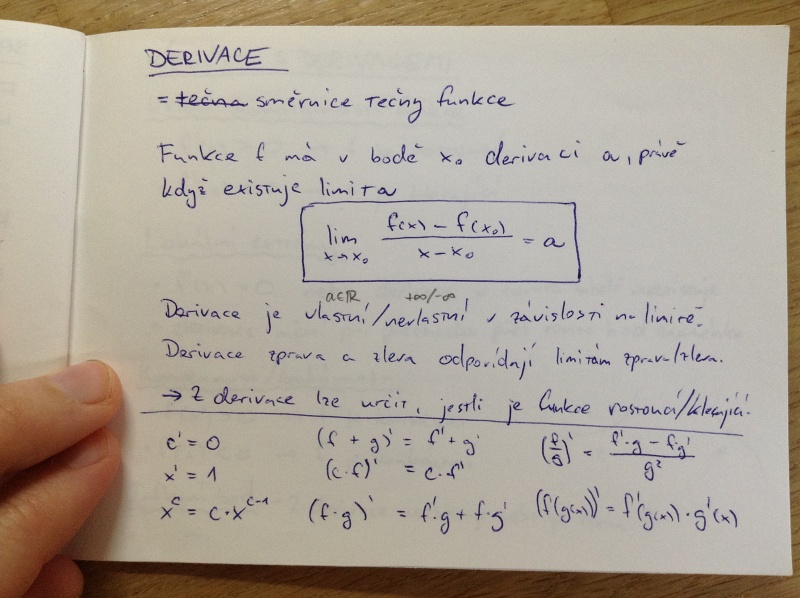 DERIVACE
= tečna směrnice tečny funkce
Funkce f má v bodě x₀ derivaci a, právě
když existuje limita
lim x→x₀ (f(x) − f(x₀))/(x − x₀) = a
a∈ℝ +∞/-∞
Derivace je vlastní/nevlastní v závislosti na limitě.
Derivace zprava a zleva odpovídají limitám zprava/zleva.
→ Z derivace lze určit, jestli je funkce rostoucí/klesající.
c' = 0 (f + g)' = f' + g' (f/g)' = (f'·g − f·g')/g²
x' = 1 (c·f)' = c·f'
x^c = c·x^(c-1) (f·g)' = f'·g + f·g' (f(g(x))' = f'(g(x))·g'(x)